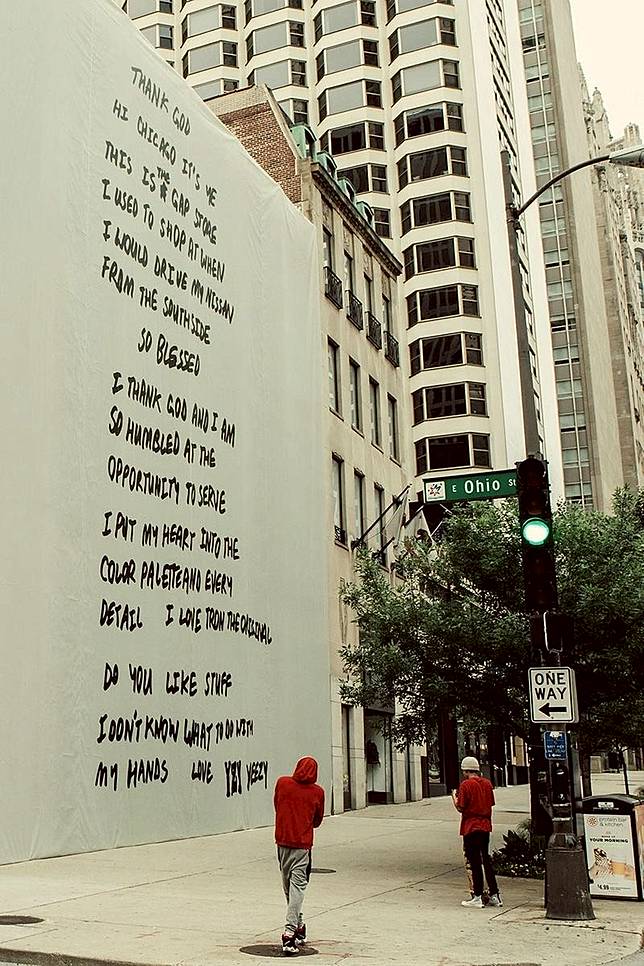 THANK GOD
HI CHICAGO IT'S YE
THIS IS THE GAP STORE
I USED TO SHOP AT WHEN
I WOULD DRIVE MY NISSAN
FROM THE SOUTHSIDE
SO BLESSED
I THANK GOD AND I AM
SO HUMBLED AT THE
OPPORTUNITY TO SERVE
I PUT MY HEART INTO THE
COLOR PALETTE AND EVERY
DETAIL I LOVE TRON THE ORIGINAL
DO YOU LIKE STUFF
I DON'T KNOW WHAT TO DO WITH
MY HANDS LOVE YEEZY
E Ohio St
ONE
WAY
protein bar
& kitchen
YOUR MORNING
$4.99